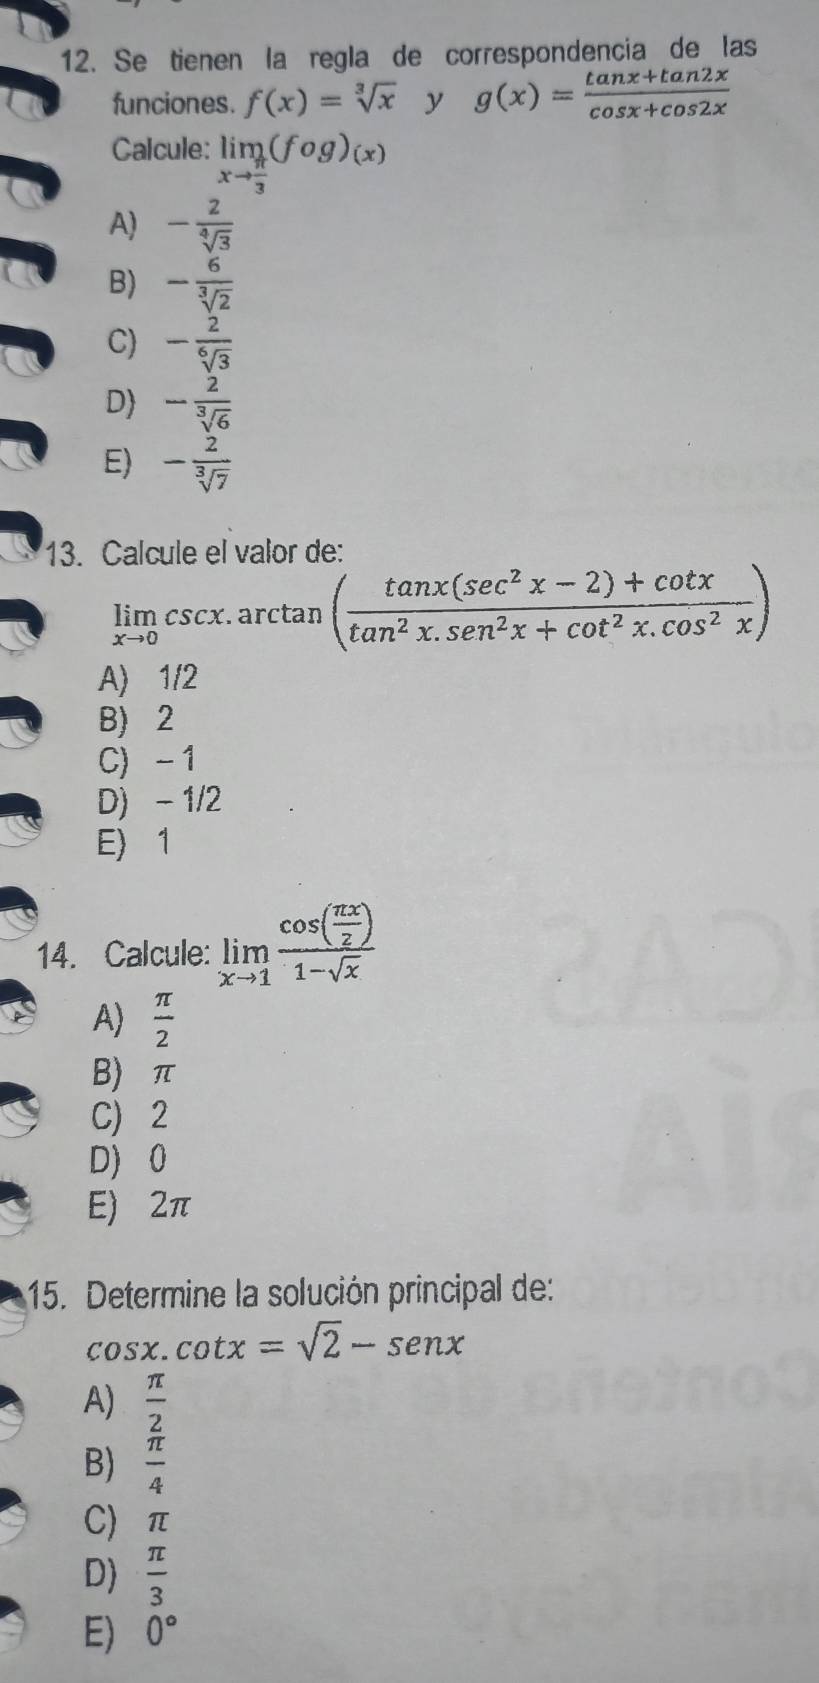 12. Se tienen la regla de correspondencia de las
funciones. f(x) = ∛x y g(x) = (tanx+tan2x)/(cosx+cos2x)
Calcule: lim x→π/3 (fog)(x)
A) −2/∜3
B) −6/∛2
C) −2/⁶√3
D) −2/∛6
E) −2/∛7
13. Calcule el valor de:
lim x→0 cscx. arctan ((tanx(sec² x − 2) + cotx)/(tan² x. sen²x + cot² x. cos² x))
A) 1/2
B) 2
C) − 1
D) − 1/2
E) 1
14. Calcule: lim x→1 cos(πx/2)/(1−√x)
A) π/2
B) π
C) 2
D) 0
E) 2π
15. Determine la solución principal de:
cosx. cotx = √2 − senx
A) π/2
B) π/4
C) π
D) π/3
E) 0°